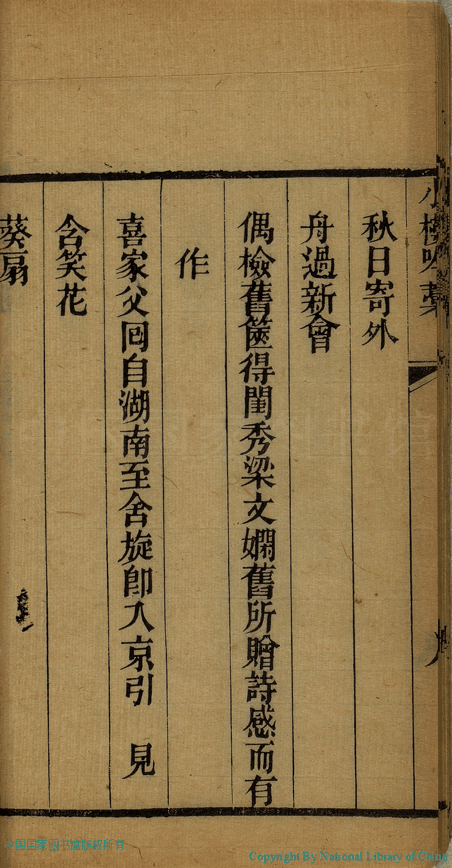 秋日寄外
舟過新會
偶檢舊篋得閨秀梁文嫻舊所贈詩感而有
作
喜家父回自湖南至舍旋卽入京引 見
含笑花
葵扇
中国国家图书馆版权所有
Copyright By National Library of China